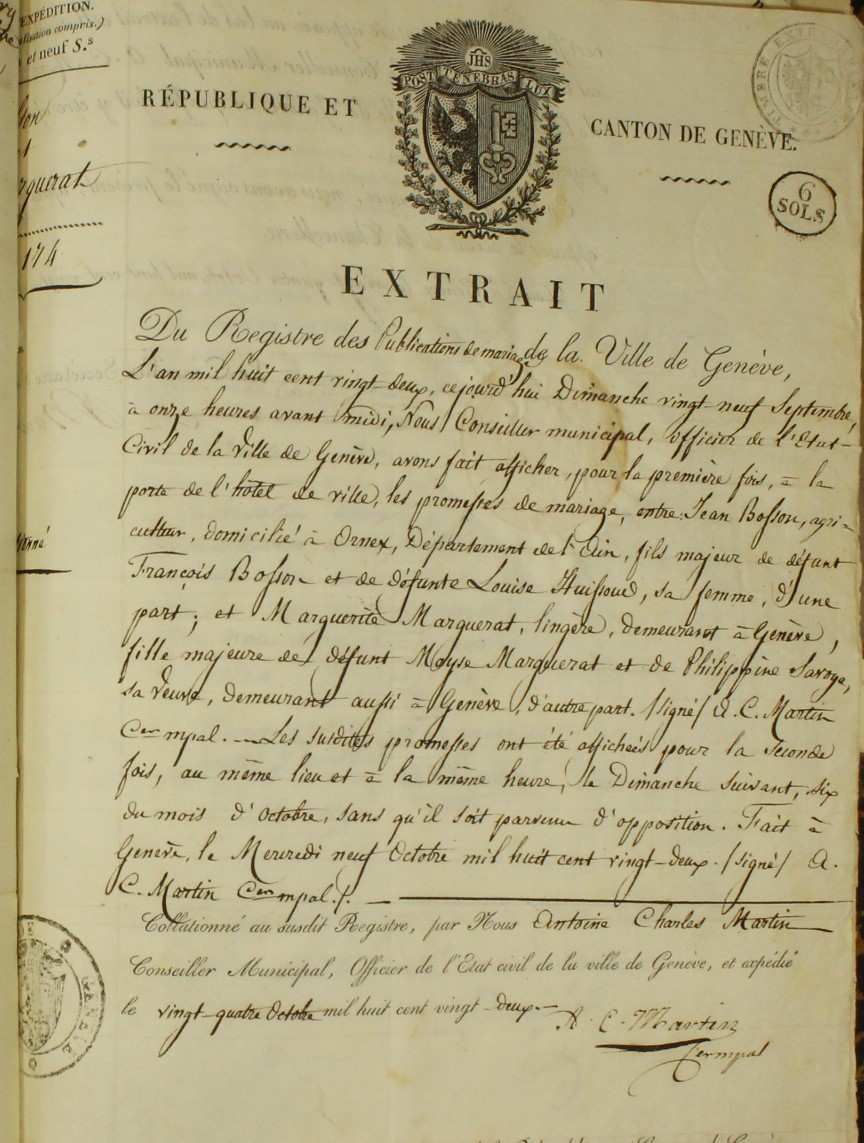 EXPÉDITION.
compris.)
et neuf S.s
174
JHS
POST TENEBRAS LUX
RÉPUBLIQUE ET
CANTON DE GENÈVE.
6
SOLS
EXTRAIT
Du Registre des Publications de mariage de la Ville de Genève,
L'an mil huit cent vingt-deux, cejourd'hui Dimanche vingt-neuf Septembre,
à onze heures avant midi, Nous Conseiller municipal, officier de l'Etat-
Civil de la Ville de Genève, avons fait afficher, pour la première fois, à la
porte de l'hôtel de ville, les promesses de mariage, entre Jean Bosson, agri-
culteur, domicilié à Ornex, Département de l'Ain, fils majeur de défunt
François Bosson et de défunte Louise Huissoud, sa femme, d'une
part; et Marguerite Marquerat, lingère, demeurant à Genève,
fille majeure de défunt Moyse Marquerat et de Philippine Savoye,
sa Veuve, demeurant aussi à Genève, d'autre part. /signé/ A. C. Martin
Cer mpal. — Les susdites promesses ont été affichées pour la seconde
fois, au même lieu et à la même heure, le Dimanche suivant, six
du mois d'Octobre, sans qu'il soit parvenu d'opposition. Fait à
Genève, le Mercredi neuf Octobre mil huit cent vingt-deux. /signé/ A.
C. Martin Cer mpal./.
Collationné au susdit Registre, par Nous Antoine Charles Martin
Conseiller Municipal, Officier de l'Etat civil de la ville de Genève, et expédié
le vingt-quatre Octobre mil huit cent vingt-deux.—
A. C. Martin
Cer mpal